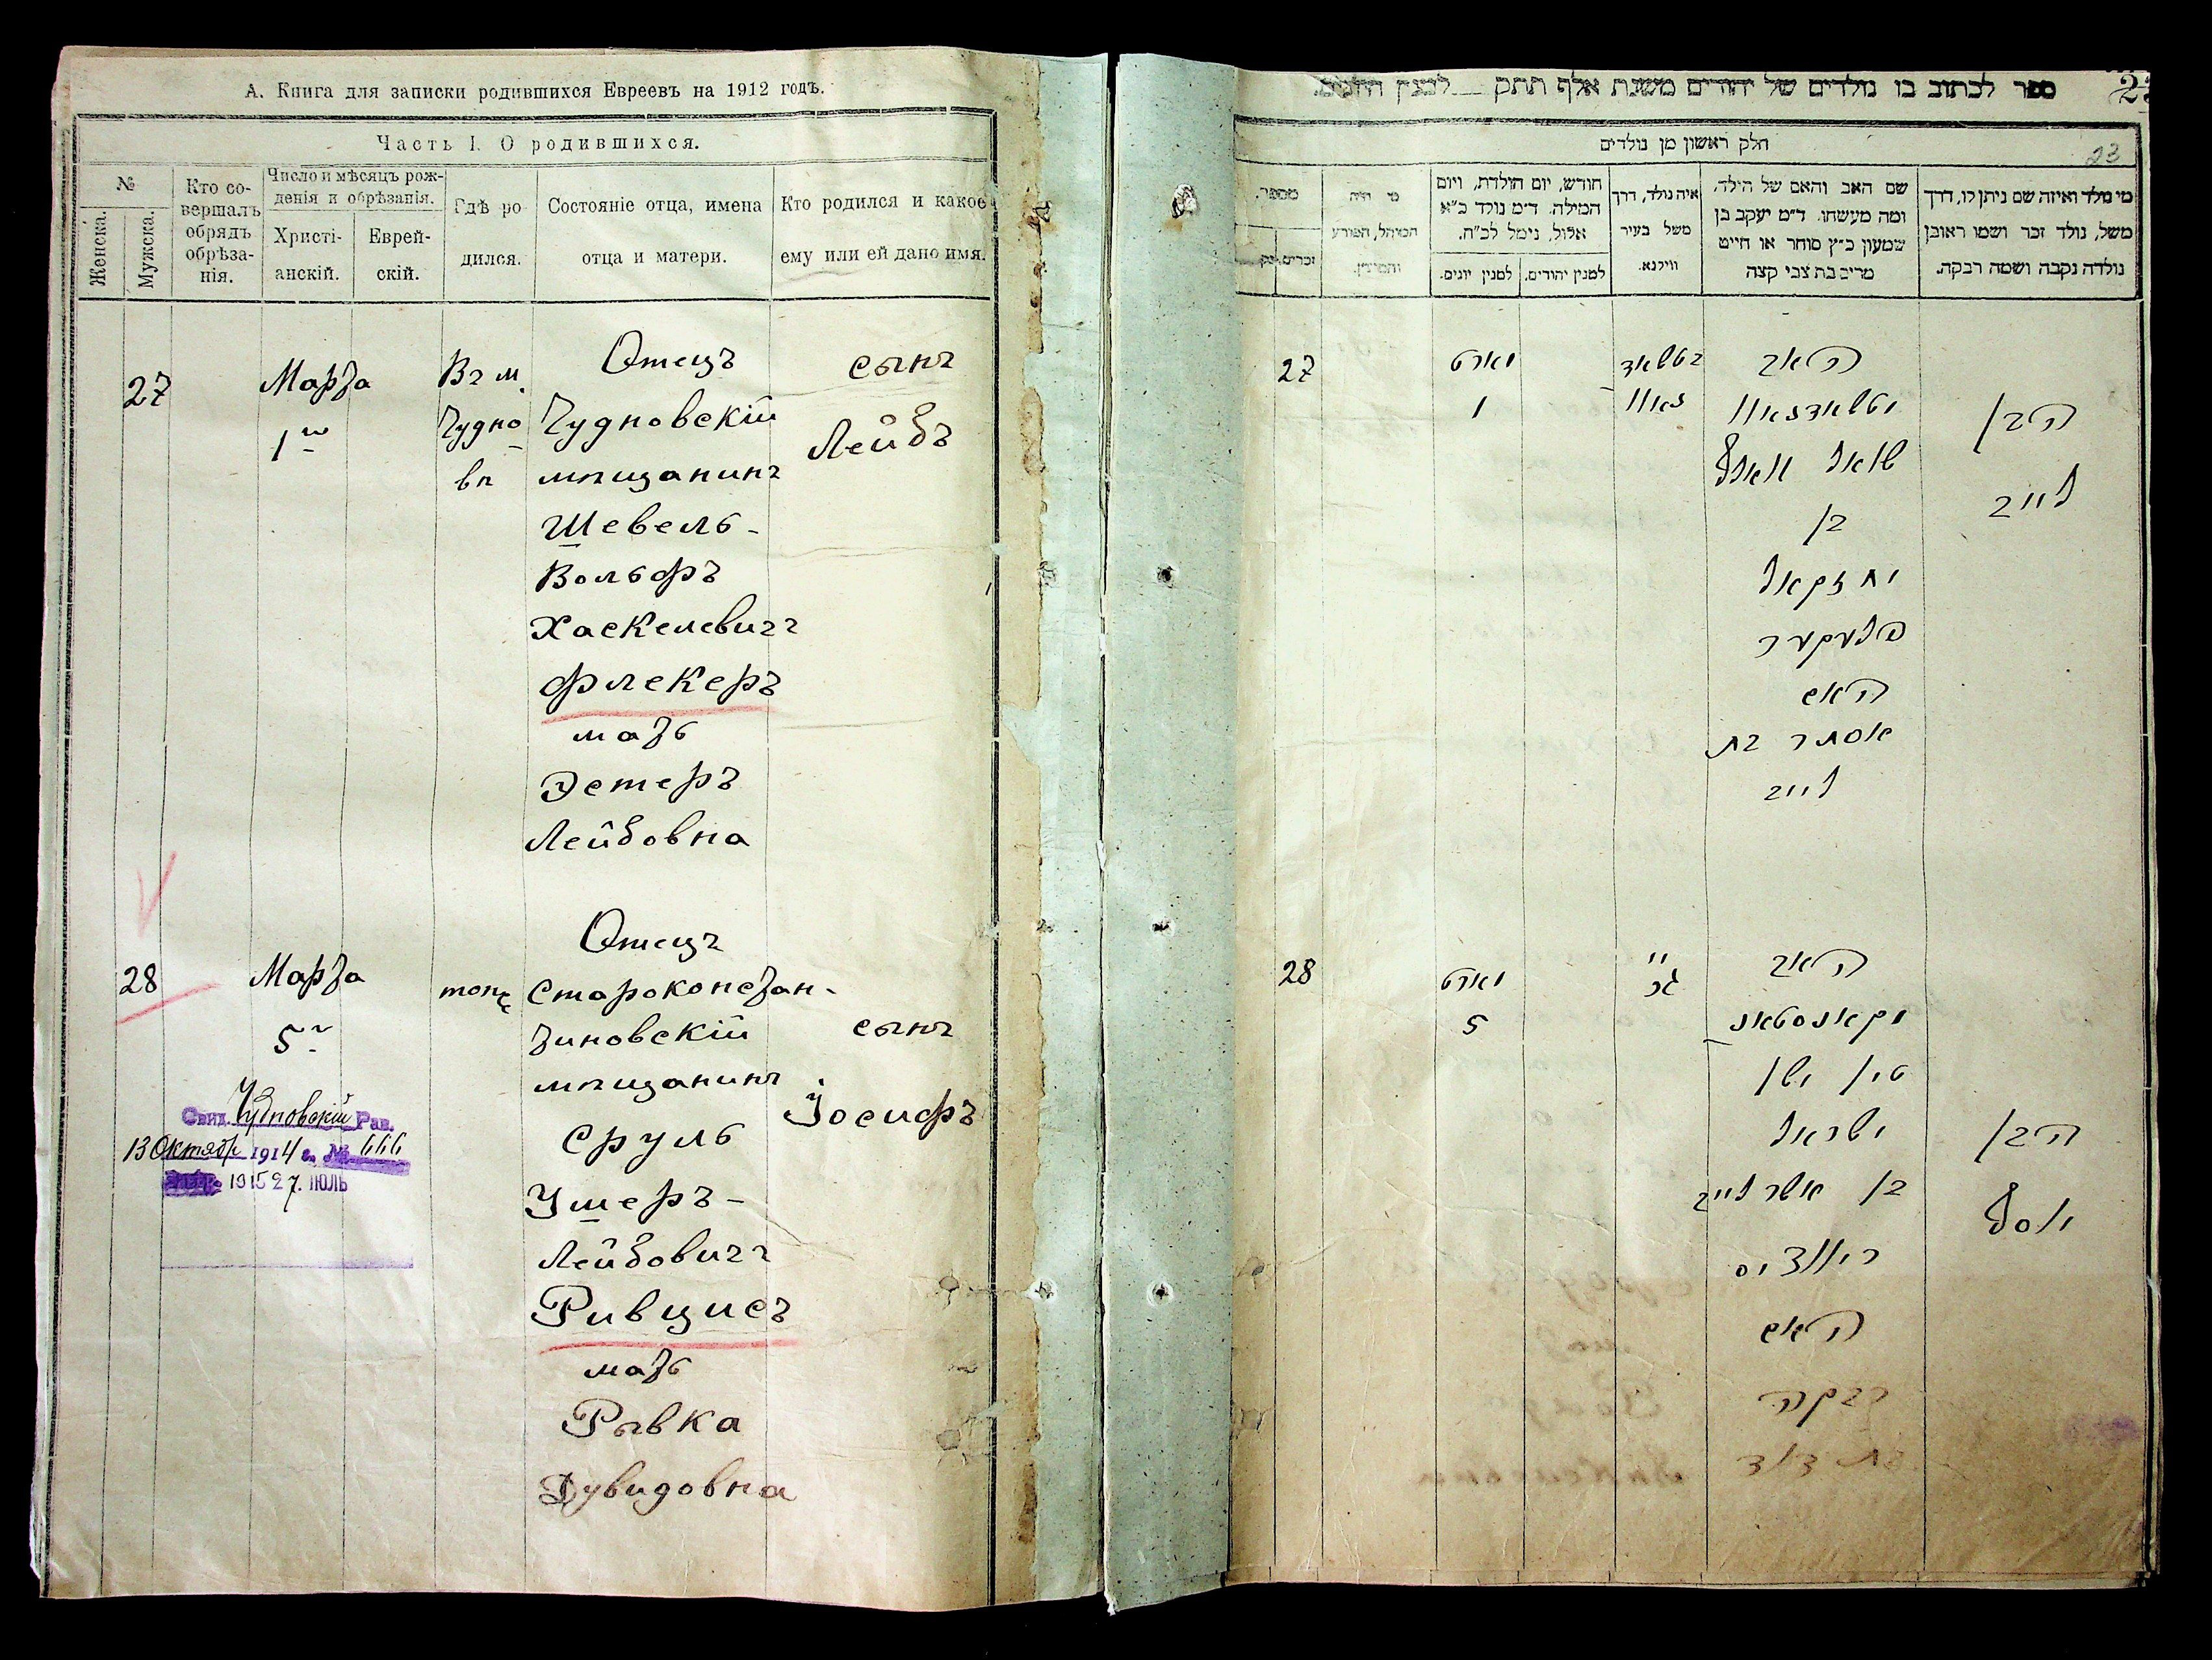 А. Книга для записки родившихся Евреевъ на 1912 годъ.
Часть I. О родившихся.
№
Женска.
Мужска.
Кто со-
вершалъ
обрядъ
обрѣза-
нія.
Число и мѣсяцъ рож-
денія и обрѣзанія.
Христі-
анскій.
Еврей-
скій.
Гдѣ ро-
дился.
Состояніе отца, имена
отца и матери.
Кто родился и какое
ему или ей дано имя.
27
Марта
1го
Въ м.
Чудно-
вѣ
Отецъ
Чудновскій
мѣщанинъ
Шевель-
Вольфъ
Хаскелевичъ
Флекеръ
мать
Эстеръ
Лейбовна
сынъ
Лейбъ
28
Марта
5го
тоже
Отецъ
Староконстан-
тиновскій
мѣщанинъ
Сруль
Ушеръ-
Лейбовичъ
Ривцисъ
мать
Рывка
Дувидовна
сынъ
Іосифъ
Свид. Чудновскій Рав.
13 Октября 1914 г. № 666
1915 27. ІЮЛЬ
ספר לכתוב בו נולדים של יהודים משנת אלף תתק
23
חלק ראשון מן נולדים
מי נולד ואיזה שם ניתן לו, דרך
משל, נולד זכר ושמו ראובן
נולדה נקבה ושמה רבקה.
שם האב והאם של הילד,
ומה מעשהו. ד״מ יעקב בן
שמעון כ״ץ סוחר או חייט
מרים בת צבי קצה
איה נולד, דרך
משל בעיר
ווילנא.
חודש, יום הולדת, ויום
המילה. ד״מ נולד כ״א
אלול, נימל לכ״ח.
למנין יהודים.
למנין יונים.
מי היה
המוהל, הפורע
מספר.
זכרים.
נק
27
מארט
1
האב
שאול וואלף
בן
יחזקאל
פלעקער
האם
אסתר בת
לייב
הבן
לייב
28
מארט
5
האב
מקאנסטאנ
טין ישן
ישראל
בן אשר לייב
ריווציס
האם
רבקה
בת דוד
הבן
יוסף